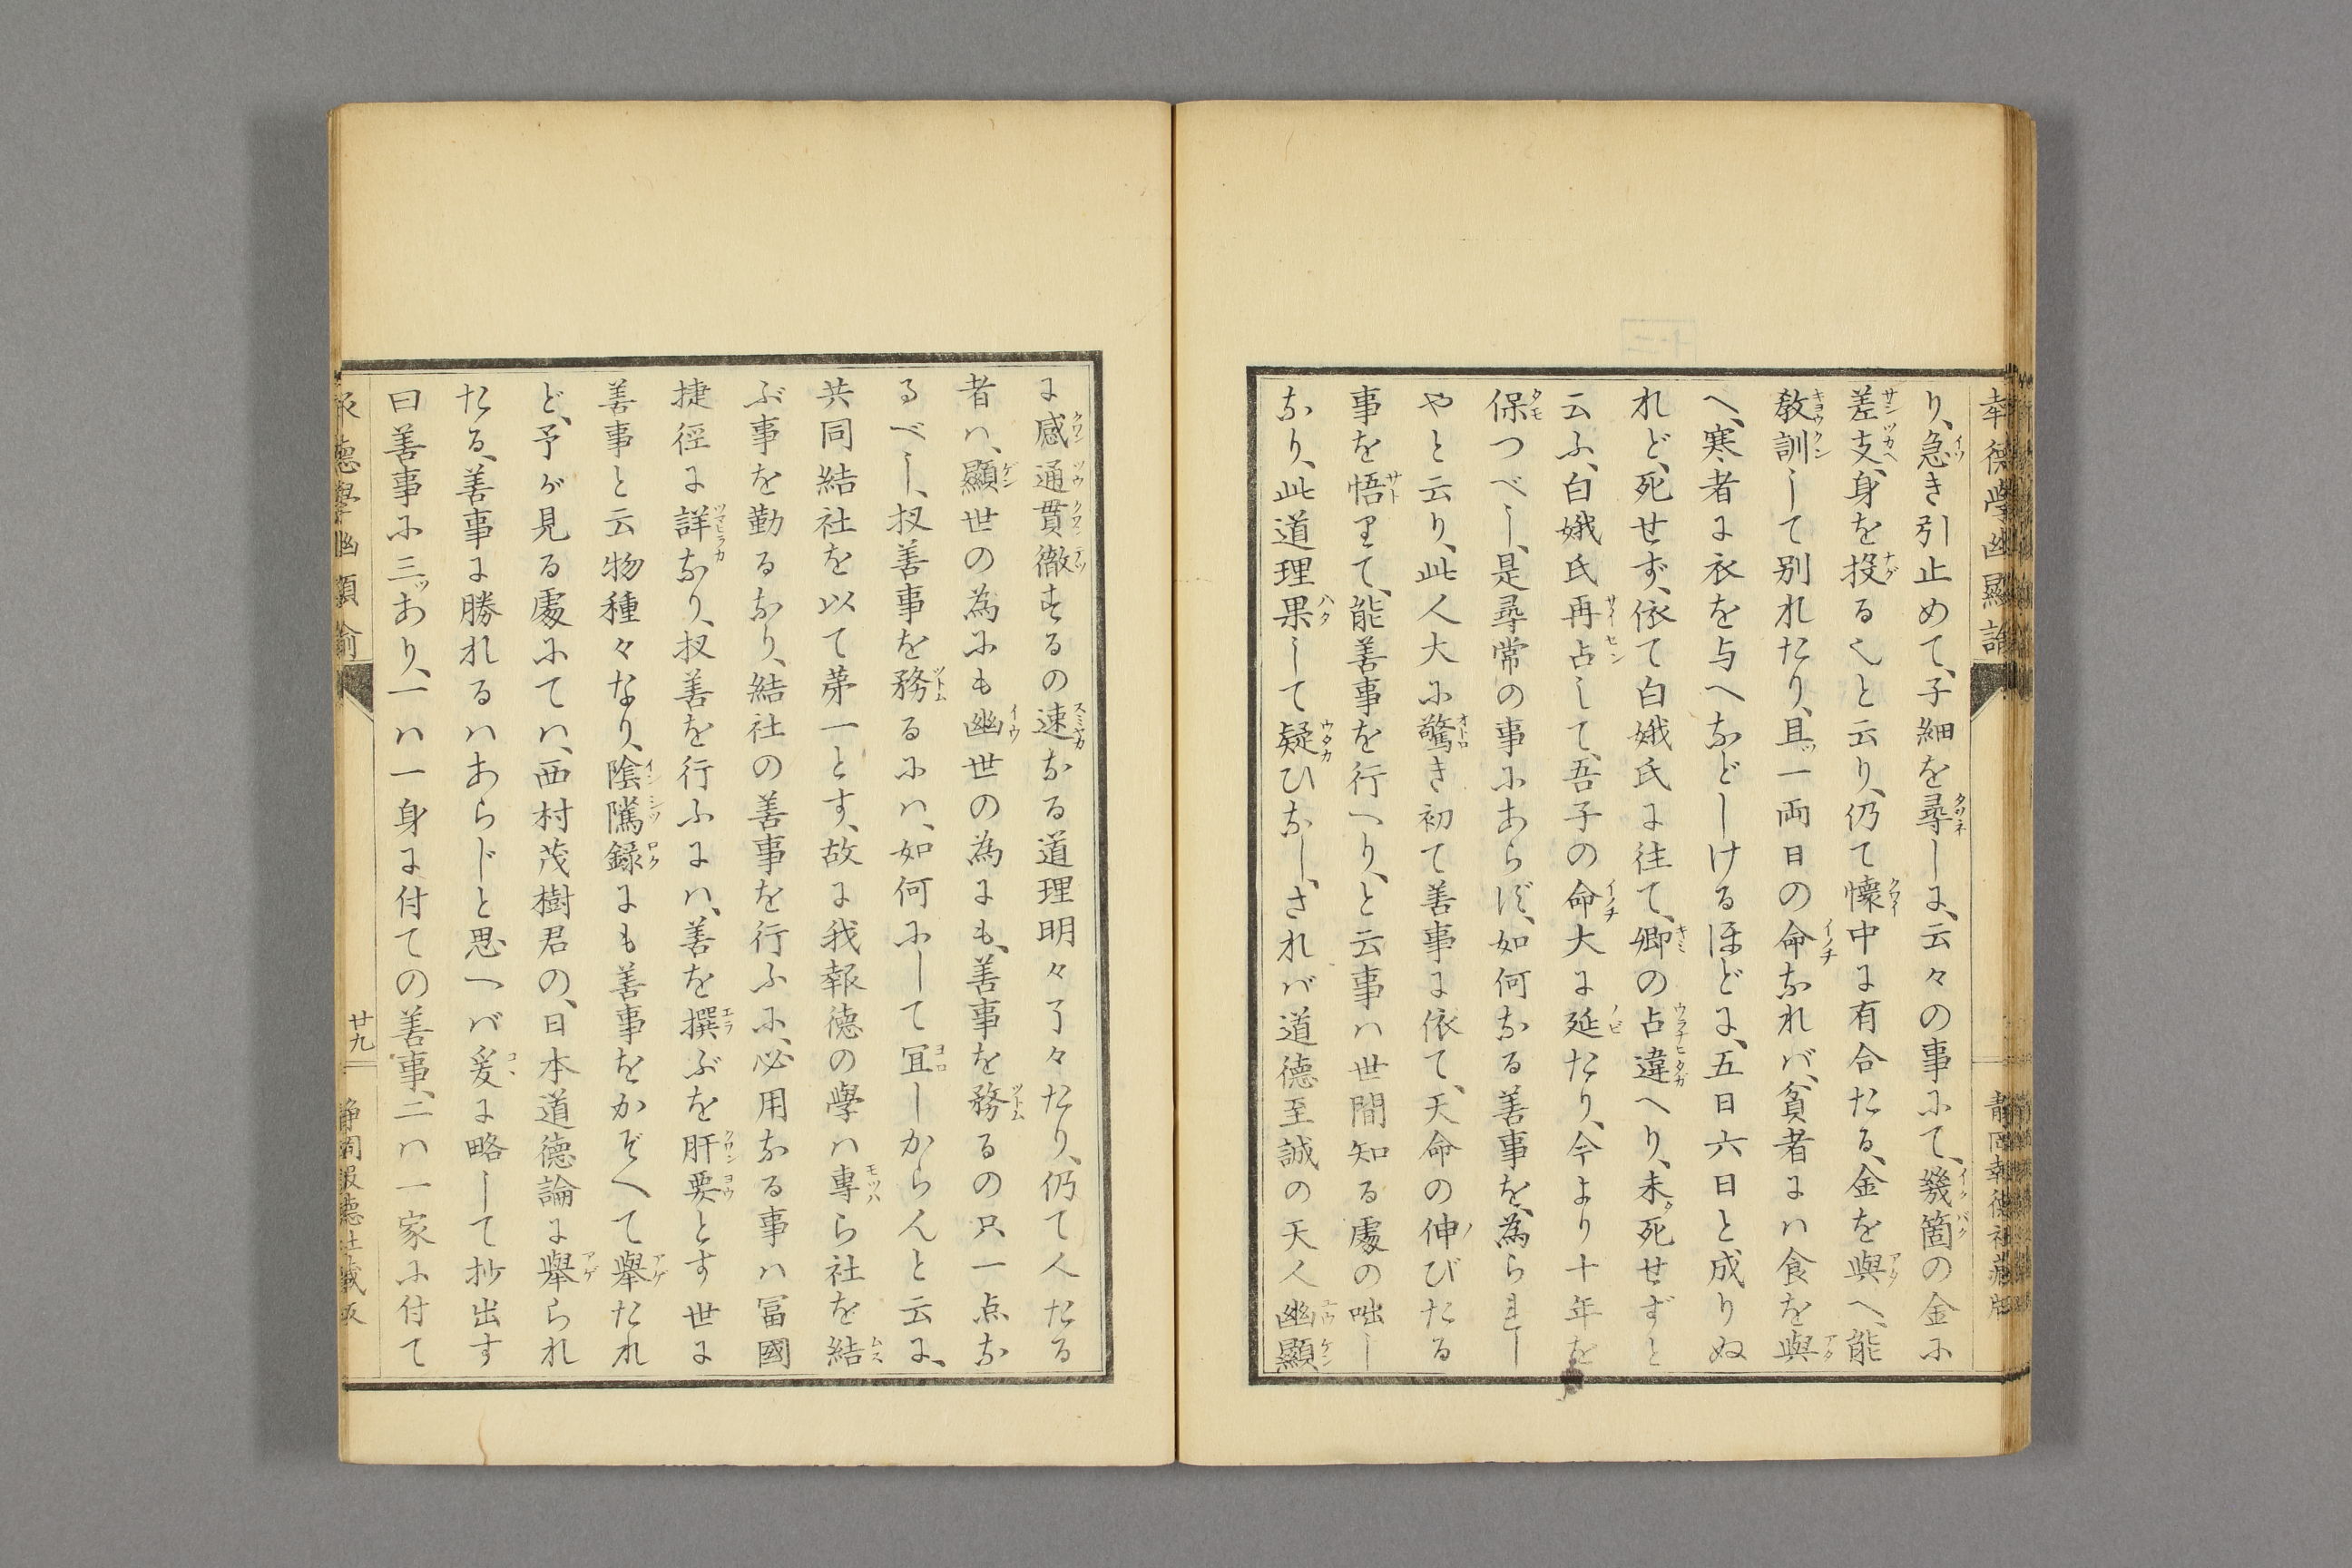 報德學幽顯論
静岡報德社藏版
り、急き引止めて、子細を尋しに、云々の事にて、幾箇の金に
差支、身を投る也と云り、仍て懷中に有合たる、金を與へ、能
教訓して別れたり、且ッ一両日の命なれバ、貧者にハ食を與
へ、寒者に衣を与へなどしけるほどに、五日六日と成りぬ
れど、死せず、依て白娥氏に往て、卿の占違へり、未ダ死せずと
云ふ、白娥氏再占して、吾子の命大に延たり、今より十年を
保つべし、是尋常の事にあらず、如何なる善事を、為られし
やと云り、此人大に驚き初て善事に依て、天命の伸びたる
事を悟りて、能善事を行へり、と云事ハ世間知る處の咄し
なり、此道理果して疑ひなし、されバ道德至誠の天人幽顯
に感通貫徹するの速なる道理明々了々たり、仍て人たる
者ハ、顯世の為にも幽世の為にも、善事を務るの只一点な
るべし、扨善事を務るにハ、如何にして冝しからんと云に、
共同結社を以て苐一とす、故に我報德の學ハ専ら社を結
ぶ事を勤るなり、結社の善事を行ふに、必用なる事ハ冨國
捷徑に詳なり、扨善を行ふにハ、善を撰ぶを肝要とす世に
善事と云物種々なり、陰隲録にも善事をかぞへて舉たれ
ど、予が見る處にてハ、西村茂樹君の、日本道德論に舉られ
たる、善事に勝れるハあらじと思へバ爰に略して抄出す
曰善事に三ッあり、一ハ一身に付ての善事、二ハ一家に付て
報德學幽顯論
廿九
静岡報德社藏版